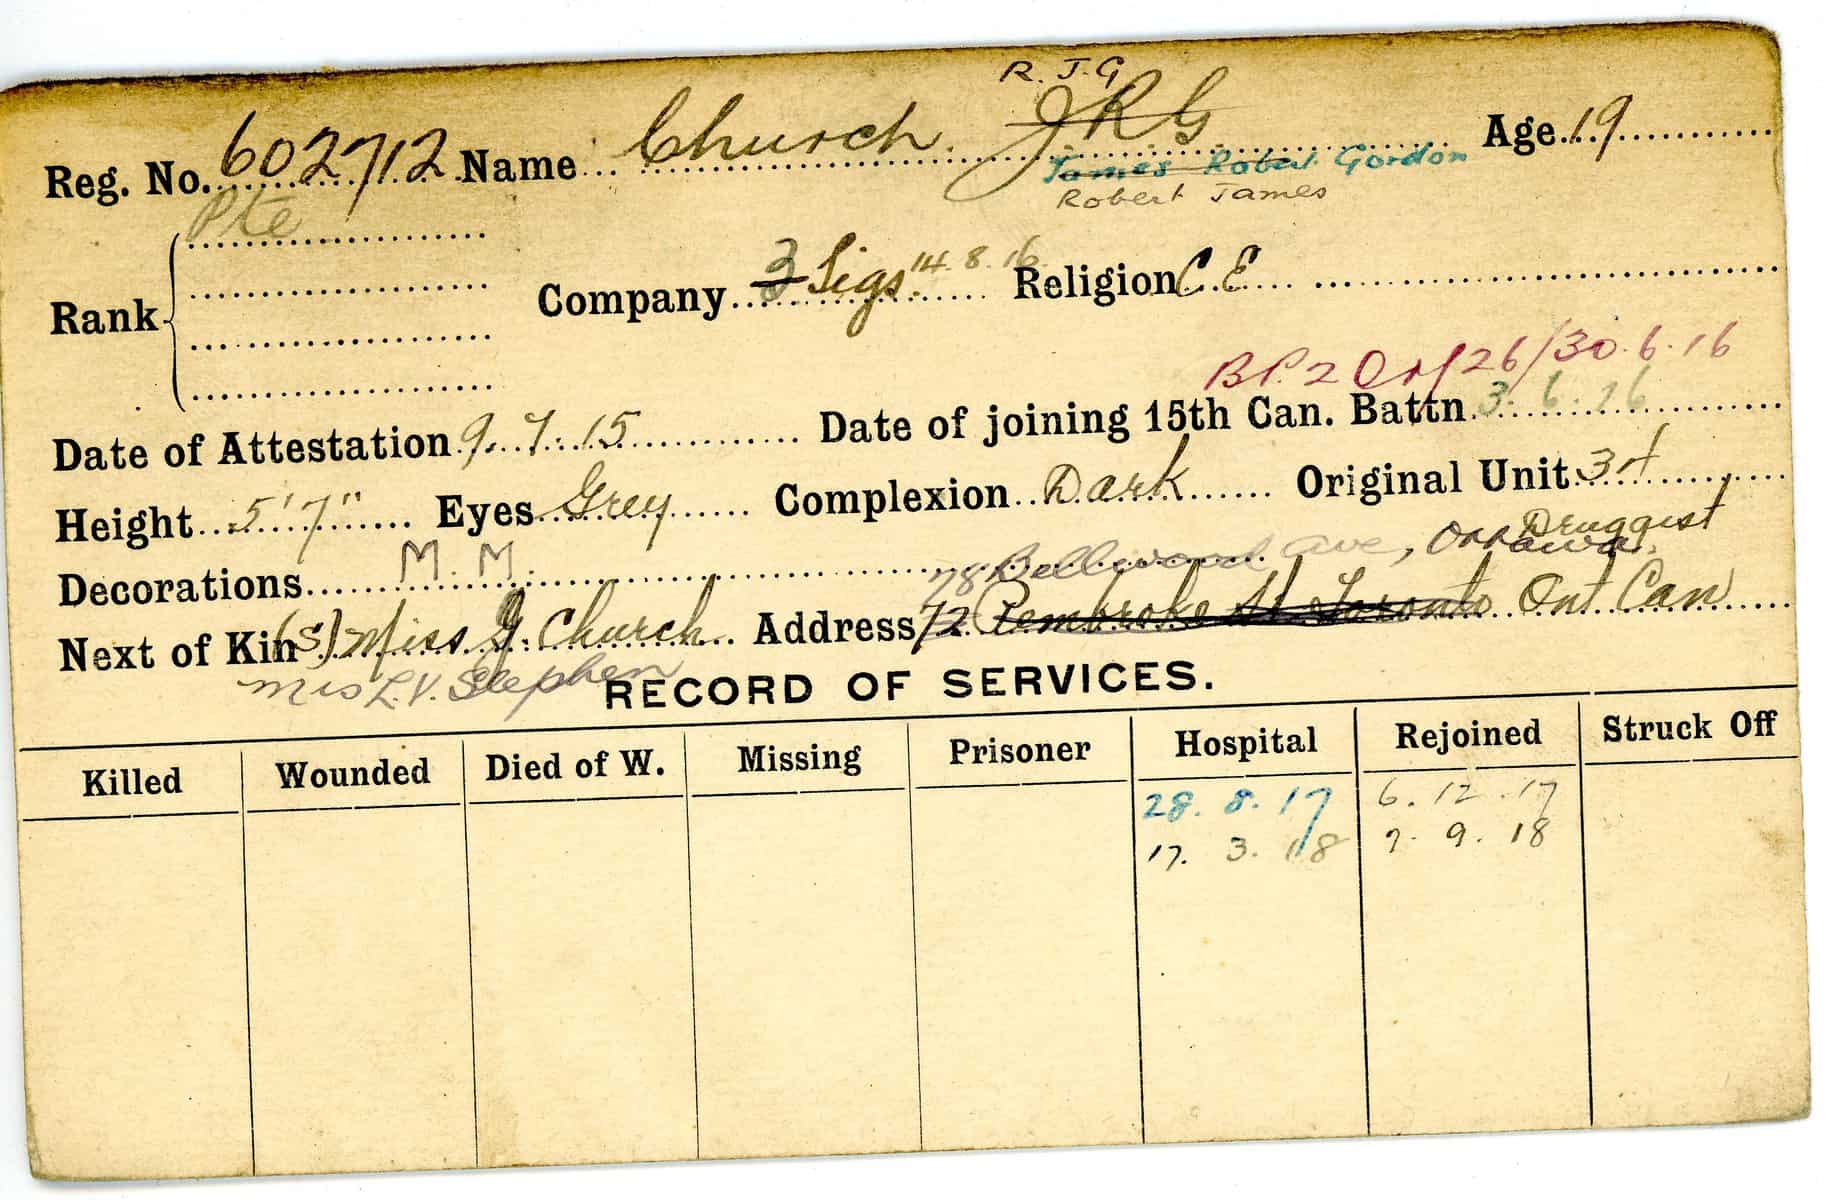 R. J. G
Reg. No. 602712 Name Church. JRG Age 19
James Robert Gordon
Pte Robert James
Rank Company 3 Sigs 14.8.16 Religion C. E
BP. 2 Or/26/30.6.16
Date of Attestation 9.7.15 Date of joining 15th Can. Battn 3.6.16
Height 5'7" Eyes Grey Complexion Dark Original Unit 34
Druggist
Decorations M. M. 78 Bellwood Ave, Ottawa.
Next of Kin (S) Miss G. Church Address 72 Pembroke St Toronto Ont Can
Mrs L. V. Stephen
RECORD OF SERVICES.
Killed Wounded Died of W. Missing Prisoner Hospital Rejoined Struck Off
28. 8. 17 6. 12. 17
17. 3. 18 7. 9. 18